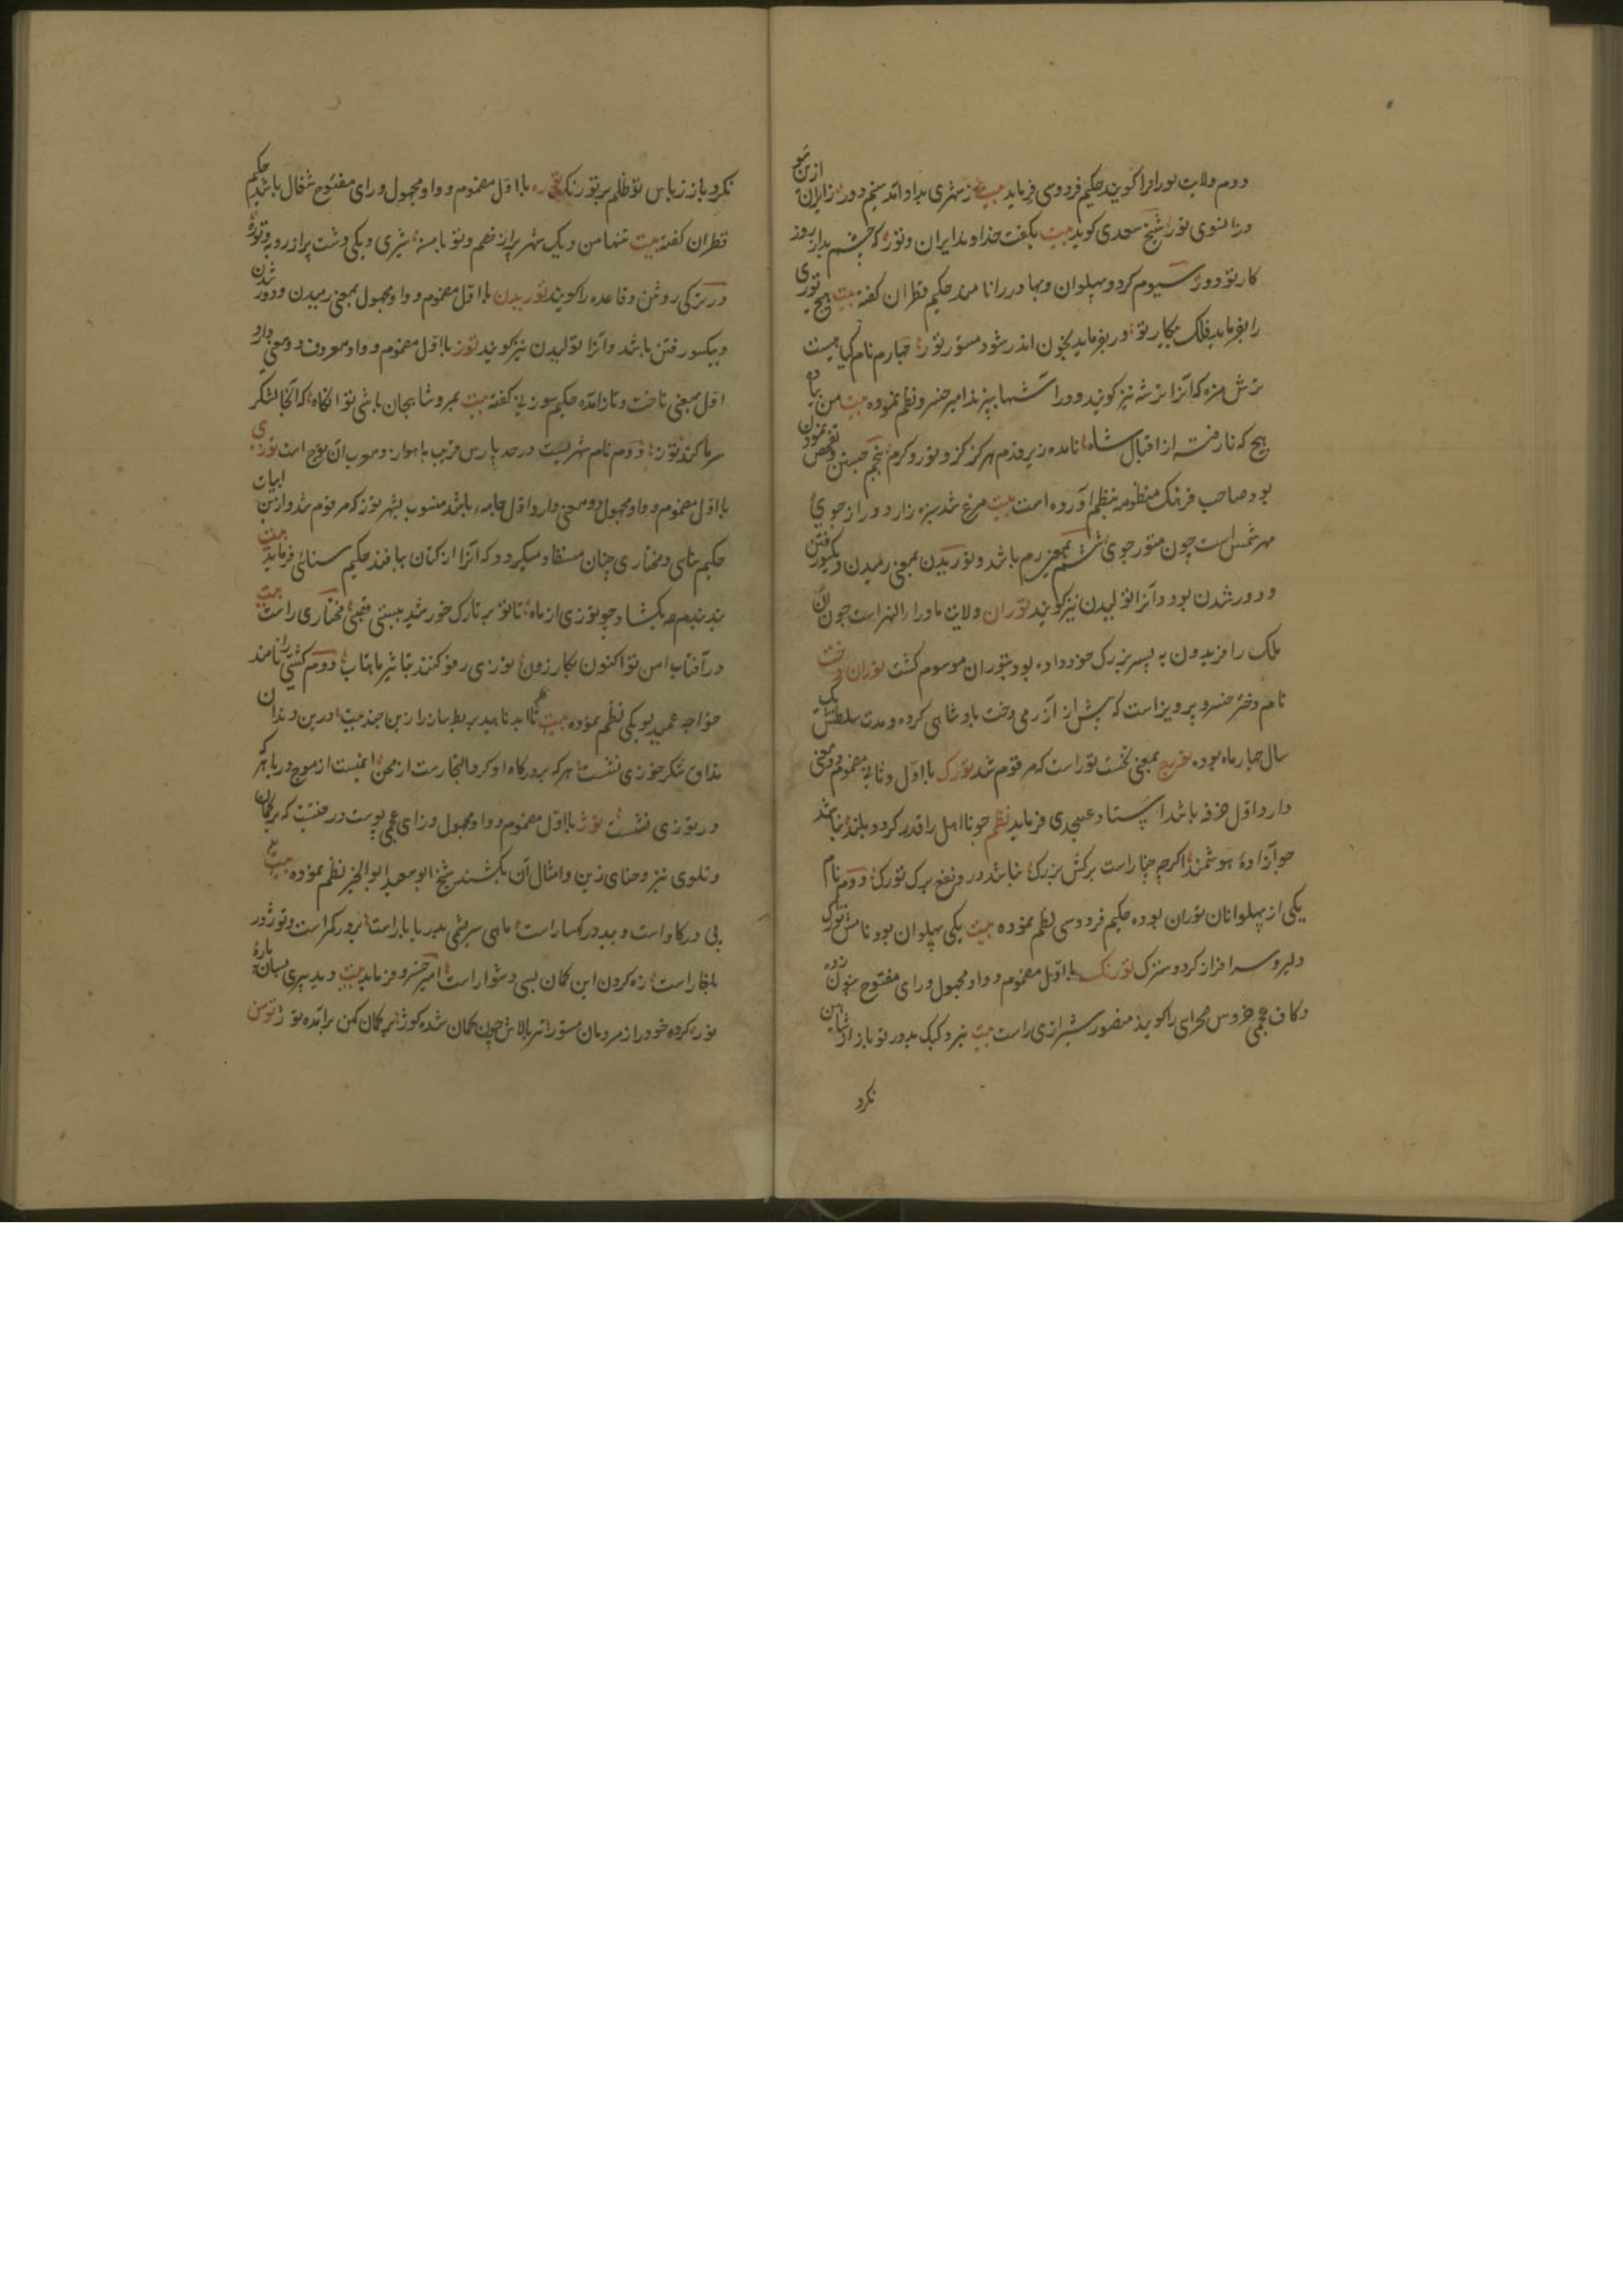 دوم ولایت تور را گویند حکیم فردوسی فرماید بیت ز شهری بداو آمد ستیم دور ز ایران ازین سو
وزانسوی تور شیخ سعدی گوید بیت بگفت خداوند ایران و تور که چشم بد از روز
کار تو دور سیوم کرد و پهلوان و بهادر را نامند حکیم قطران گفته بیت هیچ توری
را بفرماید فلک پیکار تو ور بفرماید بخون اندر شود مستور تور چهارم نام گیاهیست
ترش مزه که آنرا ترشه نیز گویند و در آشها بپزند امیر خسرو نظم نموده بیت من پیاده
هیچ که نارفته از اقبال شاه نامده زیر قدم هرگز گزر و تور و کرم پنجم جستن و تفحص نمودن
بود صاحب فرهنگ منظومه بنظم آورده است بیت مرغ شد سبزه زار و دراز جوی
مهر شمس است چون متور جوی ششم بمعنی رم باشد و توریدن بمعنی رمیدن و یکسو رفتن
و دور شدن بود و آنرا تولیدن نیز گویند توران ولایت ماوراء النهر است چون آن
ملک را فریدون به پسر بزرگ خود داده بود بتوران موسوم گشت توران دخت
نام دختر خسرو پرویز است که پیش از آزرمی دخت پادشاهی کرده و مدت سلطنتش یک
سال و چهار ماه بوده تورج بمعنی نخست تور است که مرقوم شد تورک با اول و ثانی مضموم دو معنی
دارد اول خرفه باشد استاد عسجدی فرماید نظم چو نااهل را قدر گردد بلند نباشد
چو آزاده هوشمند اگرچه چنار است برگش بزرگ نباشد در و نفع برگ تورک دوم نام
یکی از پهلوانان توران بوده حکیم فردوسی نظم نموده بیت یکی پهلوان بود نامش تورک
دلیر و سرافراز گرد و سترگ تورنگ با اول مضموم و واو مجهول و رای مفتوح بنون زده
و کاف عجمی خروس صحرای را گویند منصور شیرازی راست بیت نبرد کبک بدور تو باز از شاهین
نکرد
نکرد باز ز باس تو ظلم بر تورنگ توره با اول مضموم و واو مجهول و رای مفتوح شغال باشد حکیم
قطران گفته بیت تنها من و یک شهر پر از خصم و تو با من شیری و یکی دشت پر از روبه و توره
در ترکی روش و قاعده را گویند توریدن با اول مضموم و واو مجهول بمعنی رمیدن و دور شدن
و بیکسو رفتن باشد و آنرا تولیدن نیز گویند توز با اول مضموم و واو معروف دو معنی دارد
اول بمعنی تاخت و تاز آمده حکیم سوزنی گفته بیت
سرما کند توز دوم نام شهریست در حد پارس قریب باهواز و معرب آن توج است توزی
با اول مضموم و واو مجهول دو معنی دارد اول جامه باشد منسوب بشهر توز که مرقوم شد و ازین ابیات
حکیم سنائی و مختاری چنان مستفاد میگردد که آنرا از کتان ببافند حکیم سنائی فرماید بیت
بتارک خورشید مختاری راست بیت
در آفتاب امن تو اکنون بکار زون توزی رفو کنند بتاثیر ماهتاب دوم کشتی را نامند
خواجه عمید لوبکی نظم نموده بیت
مذاق شکر خوزی نشست هر که بدرگاه او کرد التجا رست از محن ایمنست از موج دریا هر که
در توزی نشست توژ با اول مضموم و واو مجهول و زای عجمی پوست درختیست که بر کمان
و تلوی تیر و حنای زین و امثال آن بکشند شیخ ابو سعید ابو الخیر نظم نموده بیت
پی در گاو است و بید در کهسار است ماهی سریشمی بدریا بار است بز در کمر است و توز در
بلغار است زه کردن این کمان بسی دشوار است امیر خسرو فرماید بیت
توز کرده خود را ز مردمان مستور تیر بالاش چون کمان شده کوژ بر کمان کهن برآمده توژ توسن